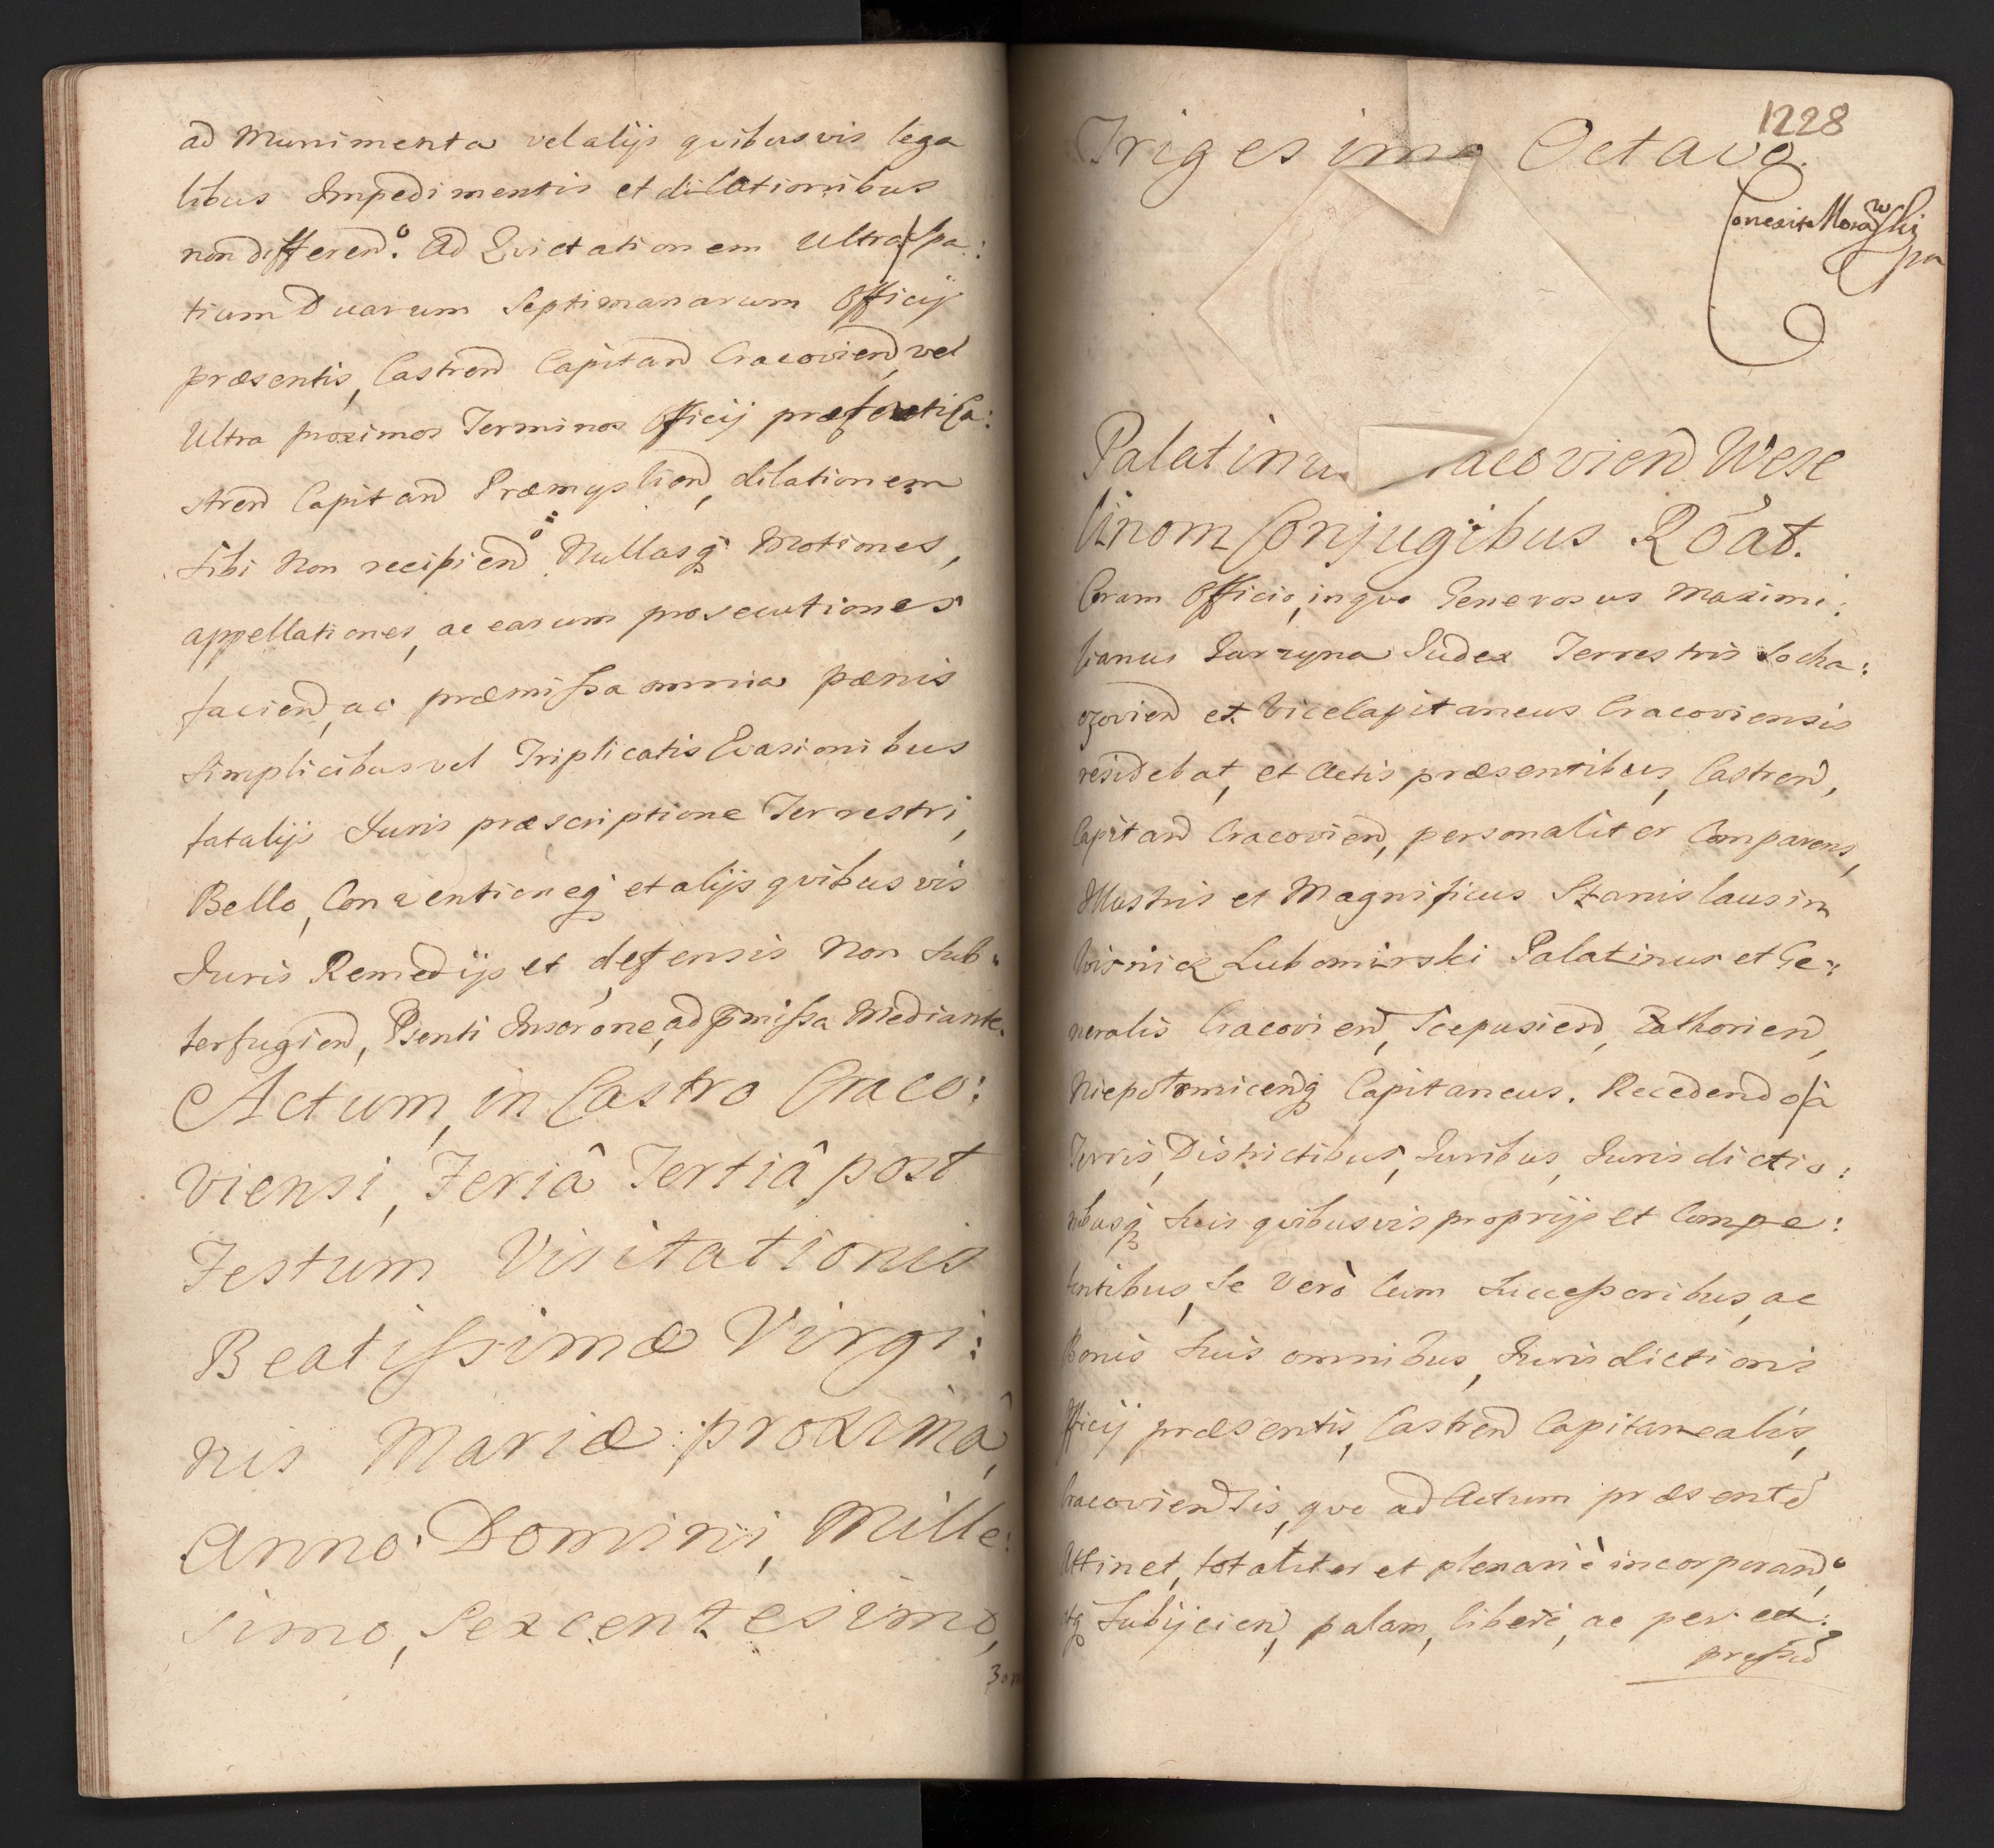 ad Munimenta vel alijs quibusvis lega
libus Impedimentis et dilationibus
non differend.o Ad Evictationem Ultra spa:
tium Duarum Septimanarum Officij
præsentis, Castren Capitan Cracovien, vel
Ultra proximos Terminos Officij præfecti Ca:
stren Capitan Præmyslien, dilationem
sibi non recipiendo Nullasq Motiones,
appellationes, ac earum prosecutiones
faciend, ac præmissa omnia pænis
simplicibus vel Triplicatis Evasionibus
fatalijs Juris præscriptione Terrestri,
Bello, Conventioneq et alijs quibusvis
Juris Remedijs et defensis non sub:
terfugiend, Psenti Inscrone, ad pmissa Mediante.
Actum, in Castro Craco:
viensi, Feriâ Tertiâ post
Festum Visitationis
Beatissimæ Virgi:
nis Mariæ proximâ,
Anno Domini, Mille:
simo, Sexcentesimo,
1228
Trigesimo Octavo.
Palatinu racovien Wese
linom Conjugibus Roat.
Coram Officio, in quo Generosus Maximi:
lianus Jarzyna Judex Terrestris Socha:
czovien et Vicecapitaneus Cracoviensis
residebat, et Actis præsentibus, Castren,
Capitan Cracovien, personaliter Comparens,
Illustris et Magnificus Stanislaus in
Wisnicz Lubomirski Palatinus et Ge:
neralis Cracovien, Scepusien, Zathorien,
Niepolomicenq Capitaneus. Recedendo à
Terris, Districtibus, Juribus, Jurisdictio:
nibusq suis quibusvis proprijs et Compe:
tentibus, se verò cum Successoribus, ac
Bonis suis omnibus, Jurisdictioni
Officij præsentis, Castren Capitanealis,
Cracoviensis, quo ad Actum præsentē
Attinet, totaliter et plenariè incorporando
atq Subijcien, palam, liberè, ac per ex: